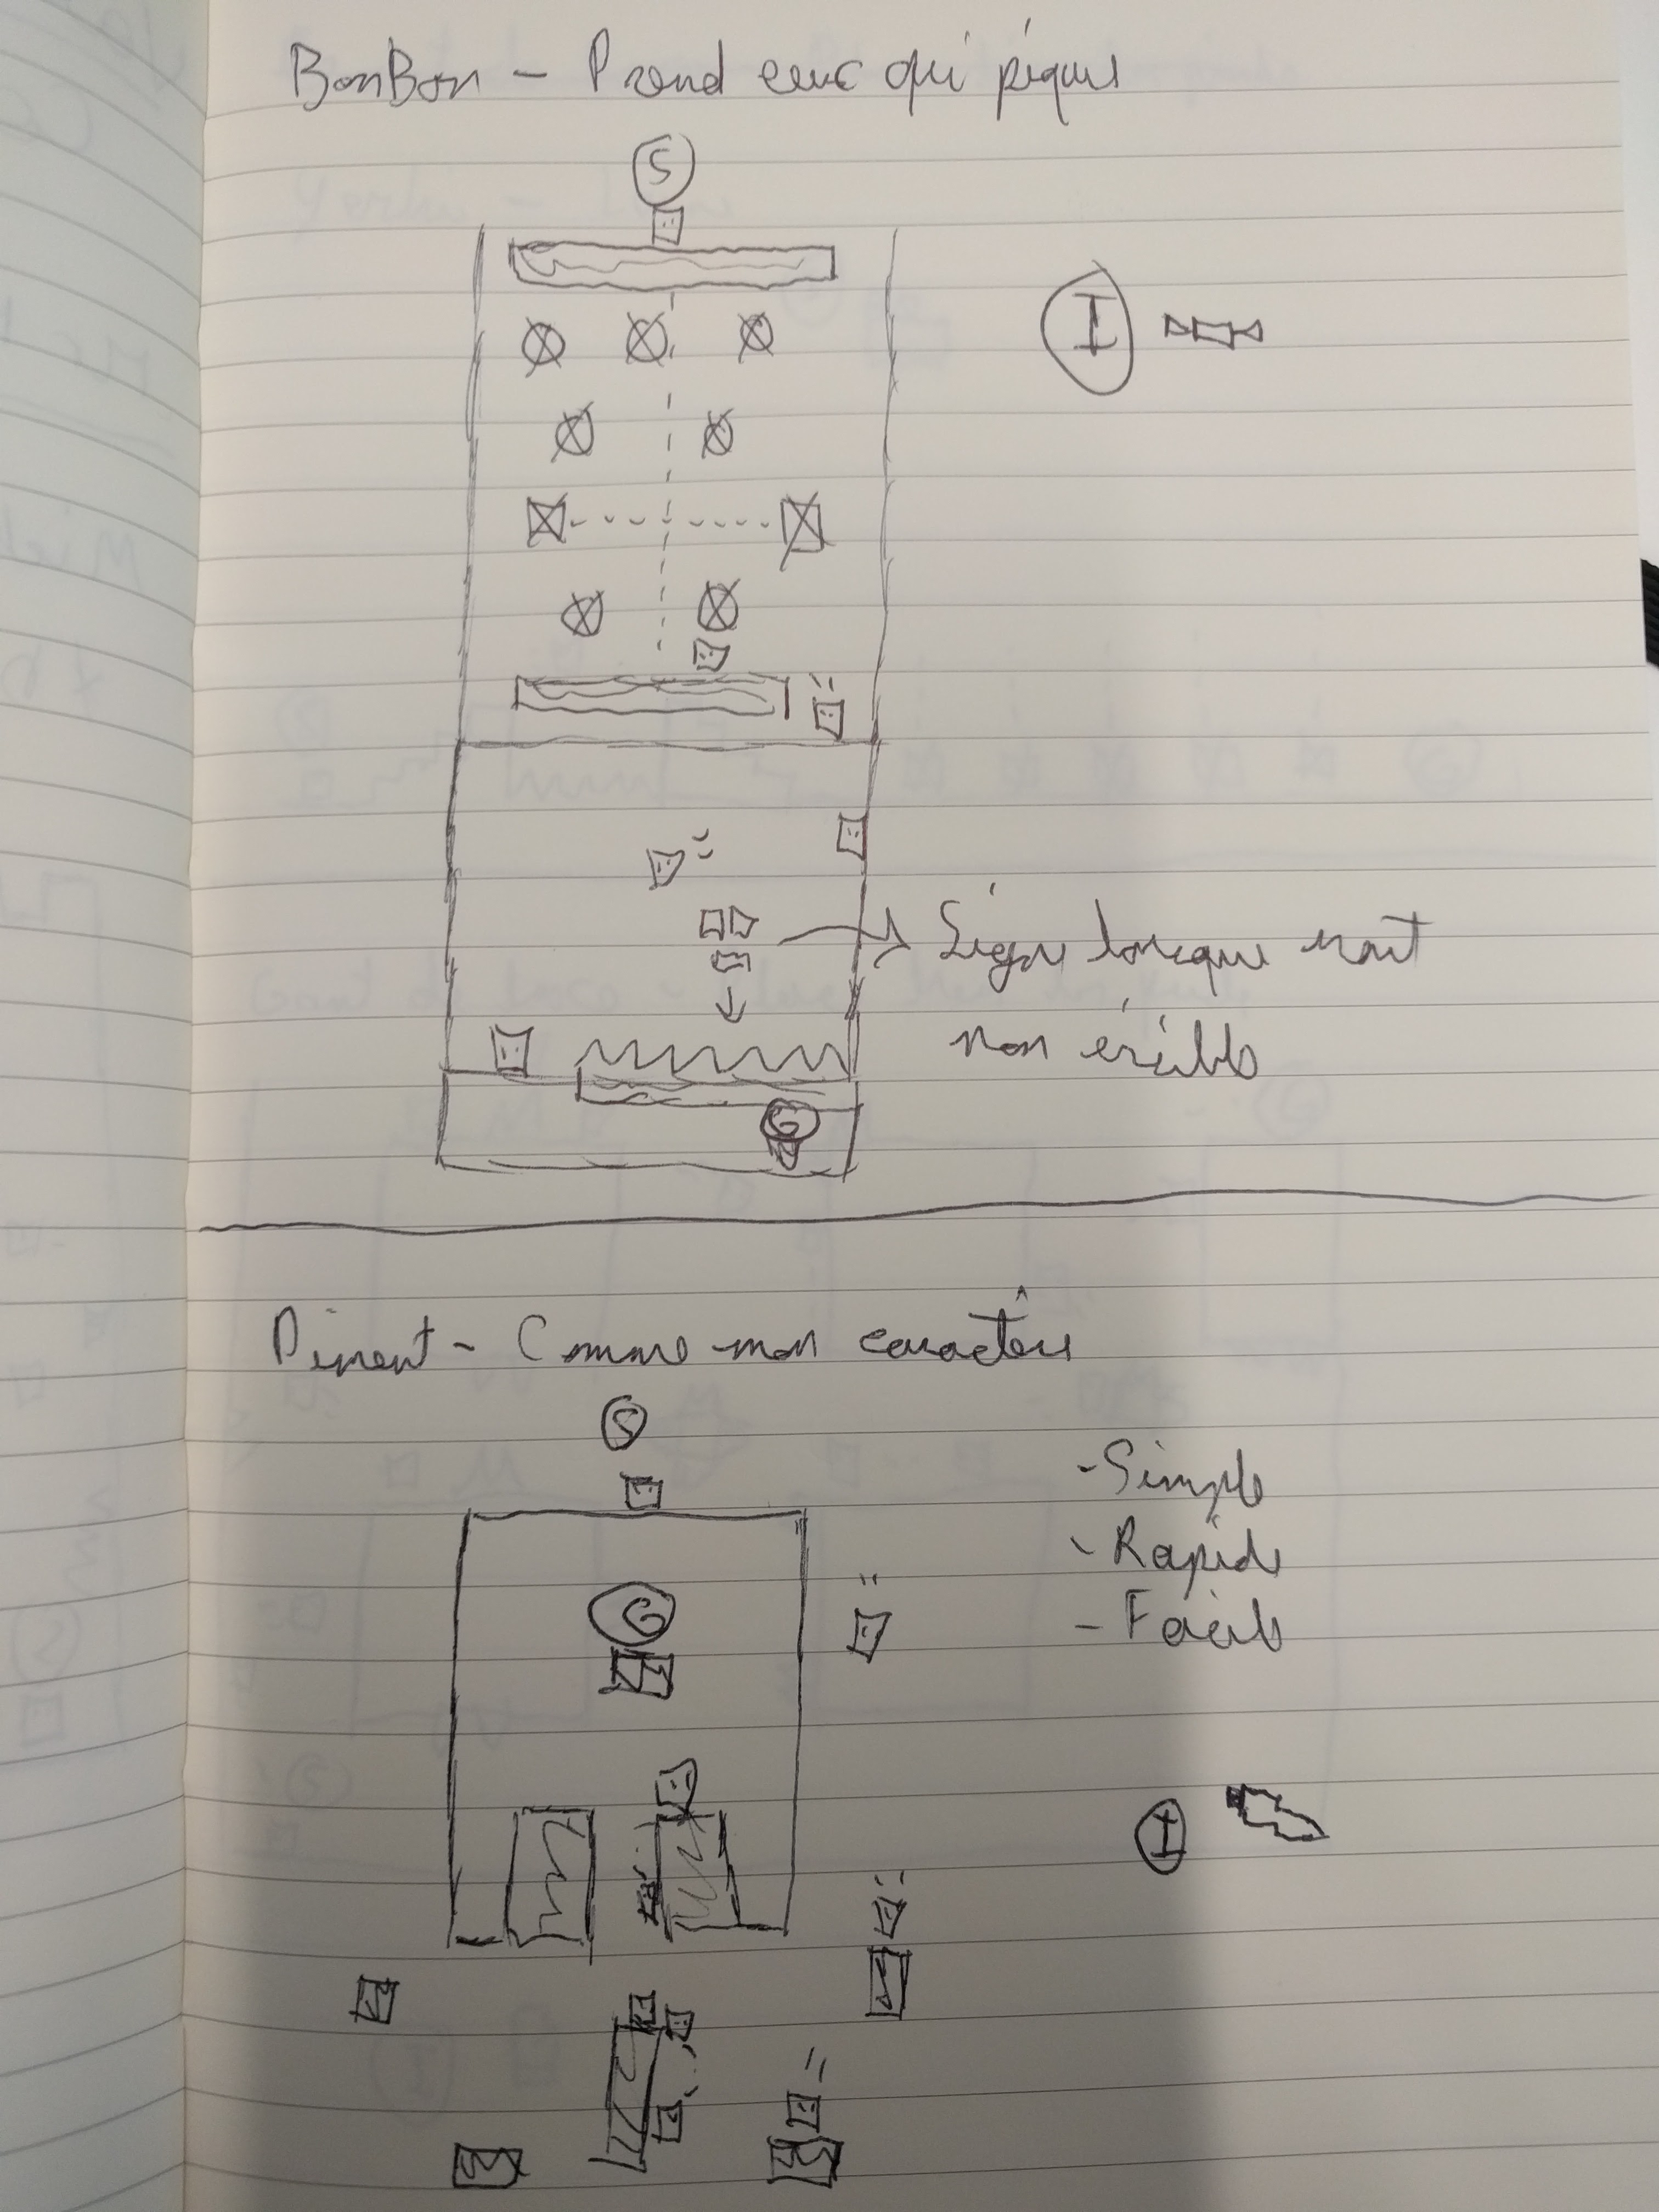 BonBon - Prend ceux qui pique
S
I
lorsque mort
non
G
Piment - Comme mon caractère
S
- Simple
- Rapide
- Facile
G
I